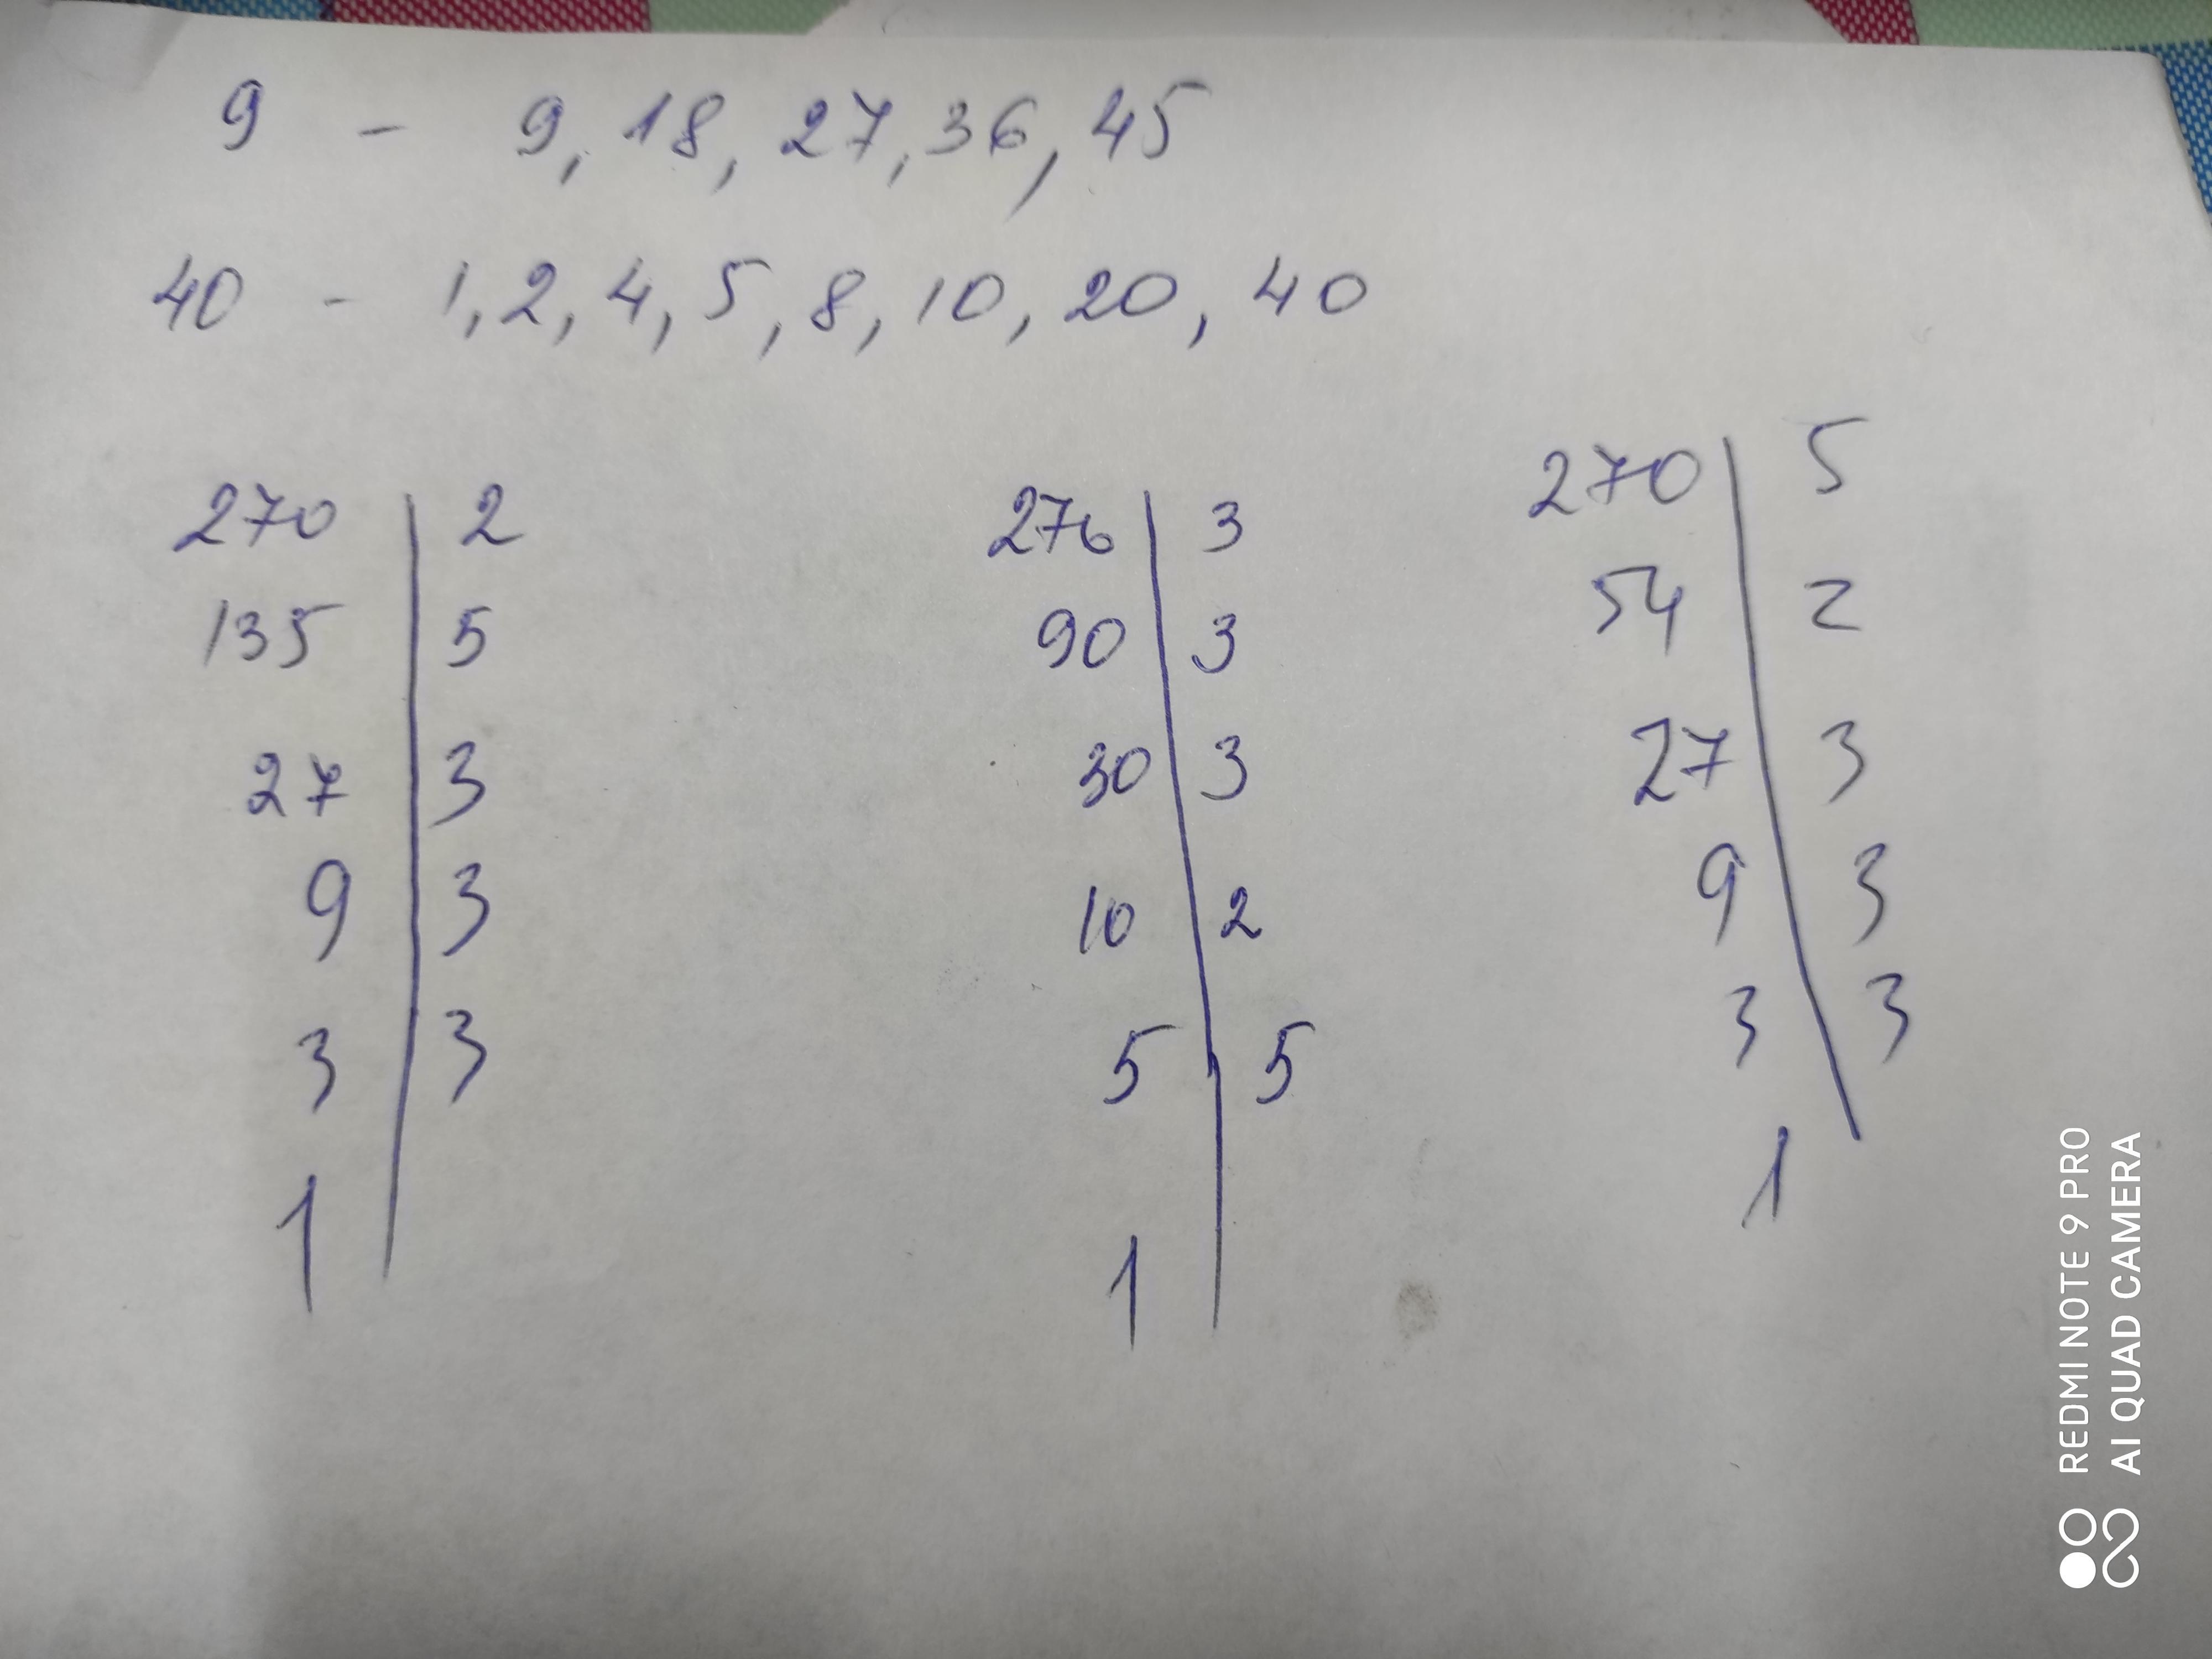 9 - 9, 18, 27, 36, 45
40 - 1, 2, 4, 5, 8, 10, 20, 40
270 | 2
135 | 5
27 | 3
9 | 3
3 | 3
1
270 | 3
90 | 3
30 | 3
10 | 2
5 | 5
1
270 | 5
54 | 2
27 | 3
9 | 3
3 | 3
1
REDMI NOTE 9 PRO
AI QUAD CAMERA